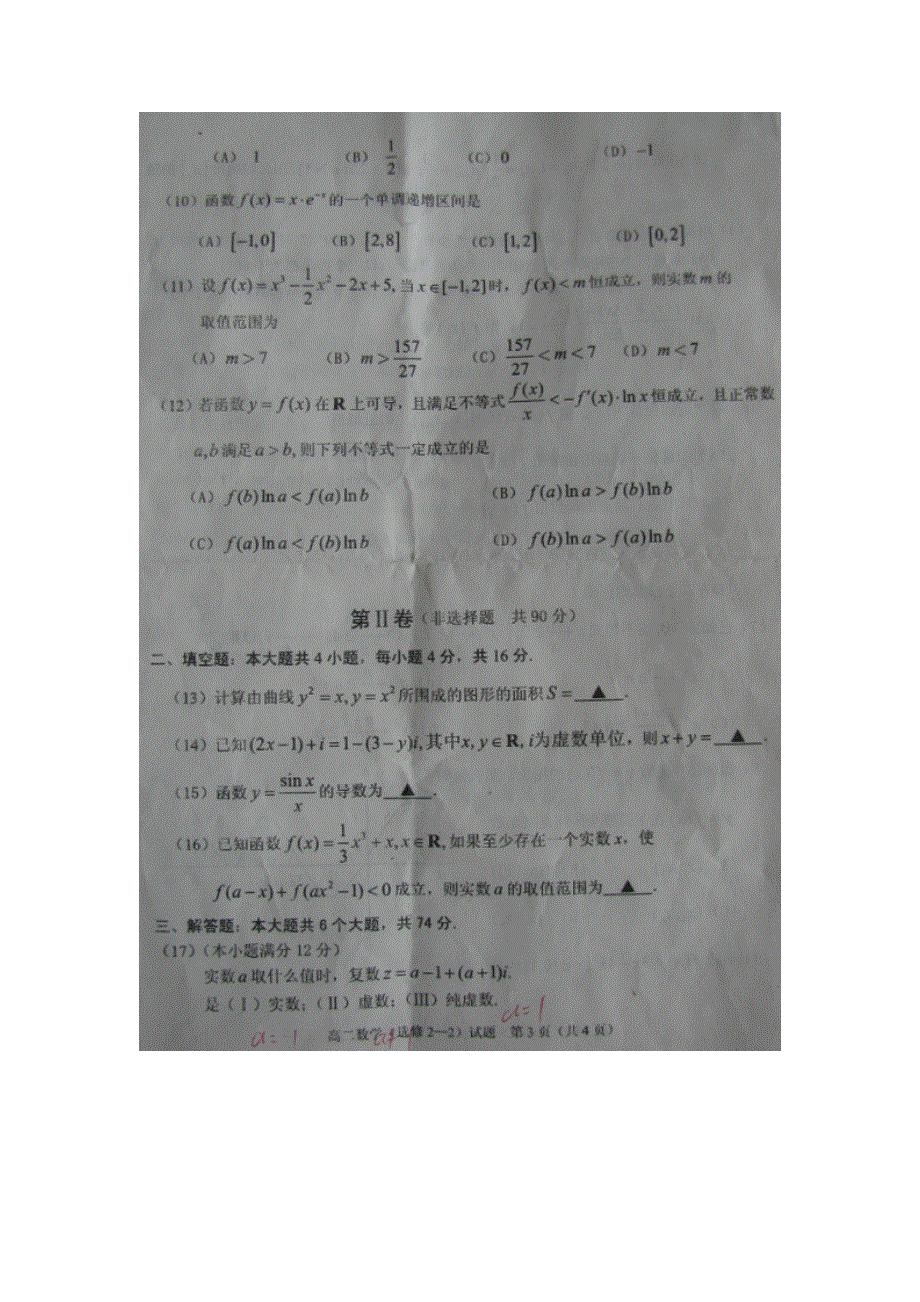 (A) 1 (B) 1/2 (C) 0 (D) -1
(10) 函数 f(x)=x·e⁻ˣ 的一个单调递增区间是
(A) [-1,0] (B) [2,8] (C) [1,2] (D) [0,2]
(11) 设 f(x)=x³-1/2x²-2x+5, 当 x∈[-1,2]时, f(x)<m 恒成立, 则实数 m 的
取值范围为
(A) m>7 (B) m>157/27 (C) 157/27<m<7 (D) m<7
(12) 若函数 y=f(x) 在 R 上可导, 且满足不等式 f(x)/x<-f′(x)·ln x 恒成立, 且正常数
a,b 满足 a>b, 则下列不等式一定成立的是
(A) f(b)ln a<f(a)ln b (B) f(a)ln a>f(b)ln b
(C) f(a)ln a<f(b)ln b (D) f(b)ln a>f(a)ln b
第II卷(非选择题 共90分)
二、填空题: 本大题共4小题, 每小题4分, 共16分.
(13) 计算由曲线 y²=x, y=x² 所围成的图形的面积 S=▲.
(14) 已知(2x-1)+i=1-(3-y)i, 其中x,y∈R, i为虚数单位, 则x+y=▲.
(15) 函数 y=sin x/x 的导数为▲.
(16) 已知函数 f(x)=1/3x³+x, x∈R, 如果至少存在一个实数x, 使
f(a-x)+f(ax²-1)<0 成立, 则实数 a 的取值范围为▲.
三、解答题: 本大题共6个大题, 共74分.
(17) (本小题满分12分)
实数 a 取什么值时, 复数 z=a-1+(a+1)i.
是(Ⅰ)实数; (Ⅱ)虚数; (Ⅲ)纯虚数. a=1
a=-1 高二数学(选修2—2)试题 第3页(共4页)